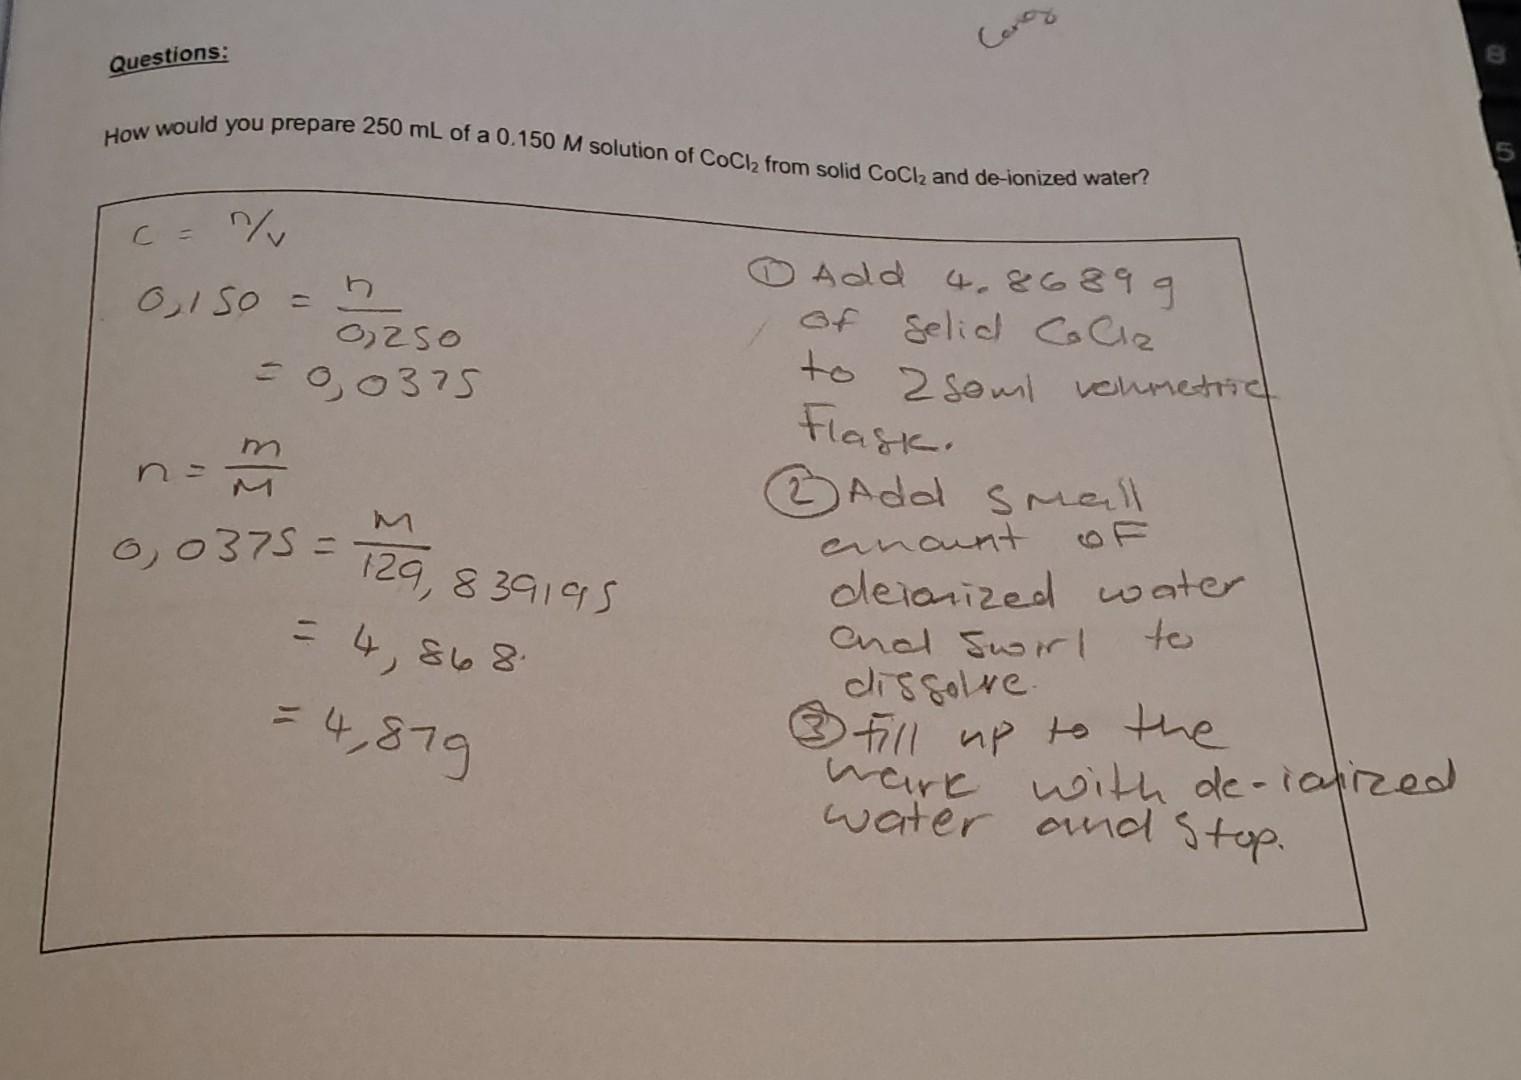 Questions:
How would you prepare 250 mL of a 0.150 M solution of CoCl₂ from solid CoCl₂ and de-ionized water?
C = n/v
0,150 = n/0,250
= 0,0375
n = m/M
0,0375 = M/129,839195
= 4,868.
= 4,87g
① Add 4.8689g
of solid CoCl₂
to 250ml volumetric
Flask.
② Add small
amount of
deionized water
and swirl to
dissolve.
③ fill up to the
mark with de-ionized
water and stop.
8
5